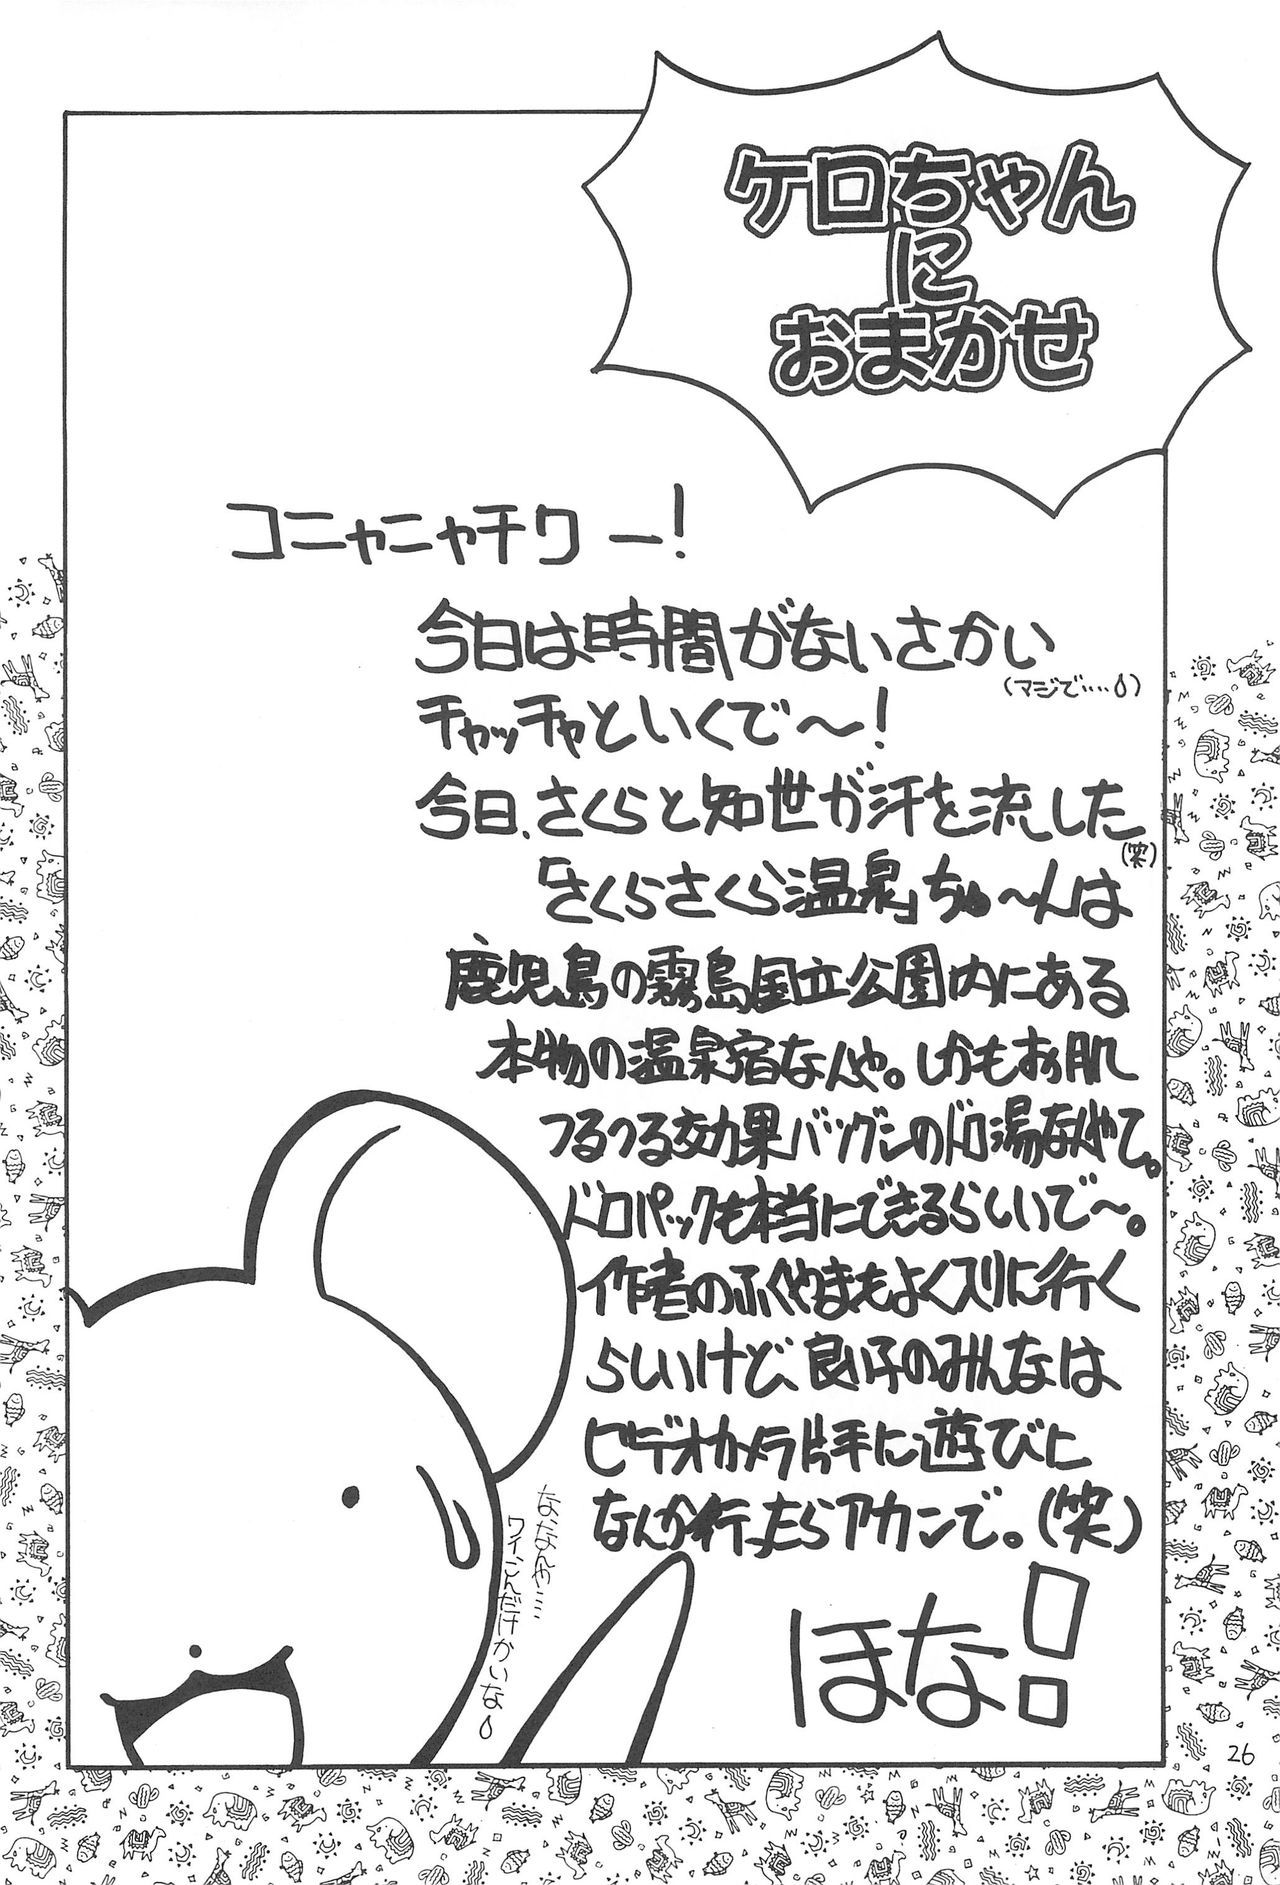 ケロちゃん
に
おまかせ
コニャニャチワー!
今日は時間がないさかい
(マジで‥‥)
チャッチャといくで〜!
今日、さくらと知世が汗を流した
(笑)
「さくらさくら温泉」ちゅ〜んは
鹿児島の霧島国立公園内にある
本物の温泉宿なんや。しかもお肌
つるつる効果バツグンのドロ湯なんやて。
ドロパックも本当にできるらしいで〜。
作者のふくやまもよくスリに行く
らしいけど、良い子のみんなは
ビデオカメラ片手に遊びに
なんか行ったらアカンで。(笑)
なんや‥‥
ワイ、こんだけかいな
ほな!
26